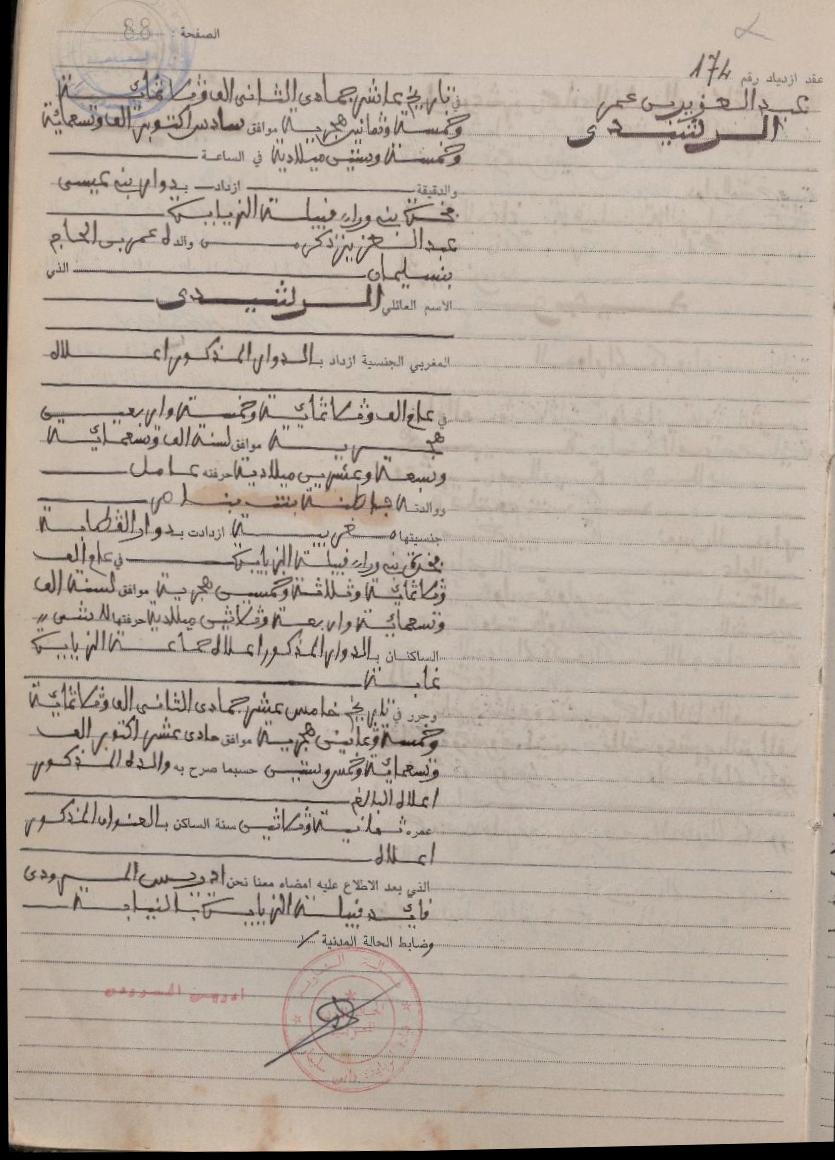 الصفحة : 88
عقد ازدياد رقم 174
عبد العزيز بن عمر
الرشيدي
في تاريخ عاشر جمادى الثاني الف وثلاثمائة
وخمسة وثمانين هجرية موافق سادس اكتوبر الف وتسعمائة
وخمسة وستين ميلادية في الساعة
والدقيقة ازداد بدوار بني عيسى
فخذة بني ورا قبيلة الزيايدة
عبد العزيز ذكر من والده عمر بن الحاج
بنسليمان الذي
الاسم العائلي الرشيدي
المغربي الجنسية ازداد بالدوار المذكور اعلاه
في عام الف وثلاثمائة وخمسة واربعين
هجرية موافق لسنة الف وتسعمائة
وسبعة وعشرين ميلادية حرفته عامل
ووالدته فاطنة بنت
جنسيتها مغربية ازدادت بدوار
فخذة بني ورا قبيلة الزيايدة في عام الف
وثلاثمائة وثلاثة وخمسين هجرية موافق لسنة الف
وتسعمائة واربعة وثلاثين ميلادية حرفتها لا شيء
الساكنان بالدوار المذكور اعلاه جماعة الزيايدة
غابة
وحرر في تاريخ خامس عشر جمادى الثاني الف وثلاثمائة
وخمسة وثمانين هجرية موافق حادى عشر اكتوبر الف
وتسعمائة وخمس وستين حسبما صرح به والده المذكور
اعلاه البالغ
عمره ثمانية وثلاثين سنة الساكن بالعنوان المذكور
اعلاه
الذي بعد الاطلاع عليه امضاه معنا نحن ادريس المسرودي
قائد قبيلة الزيايدة بالنيابة
وضابط الحالة المدنية
ادريس المسرودي